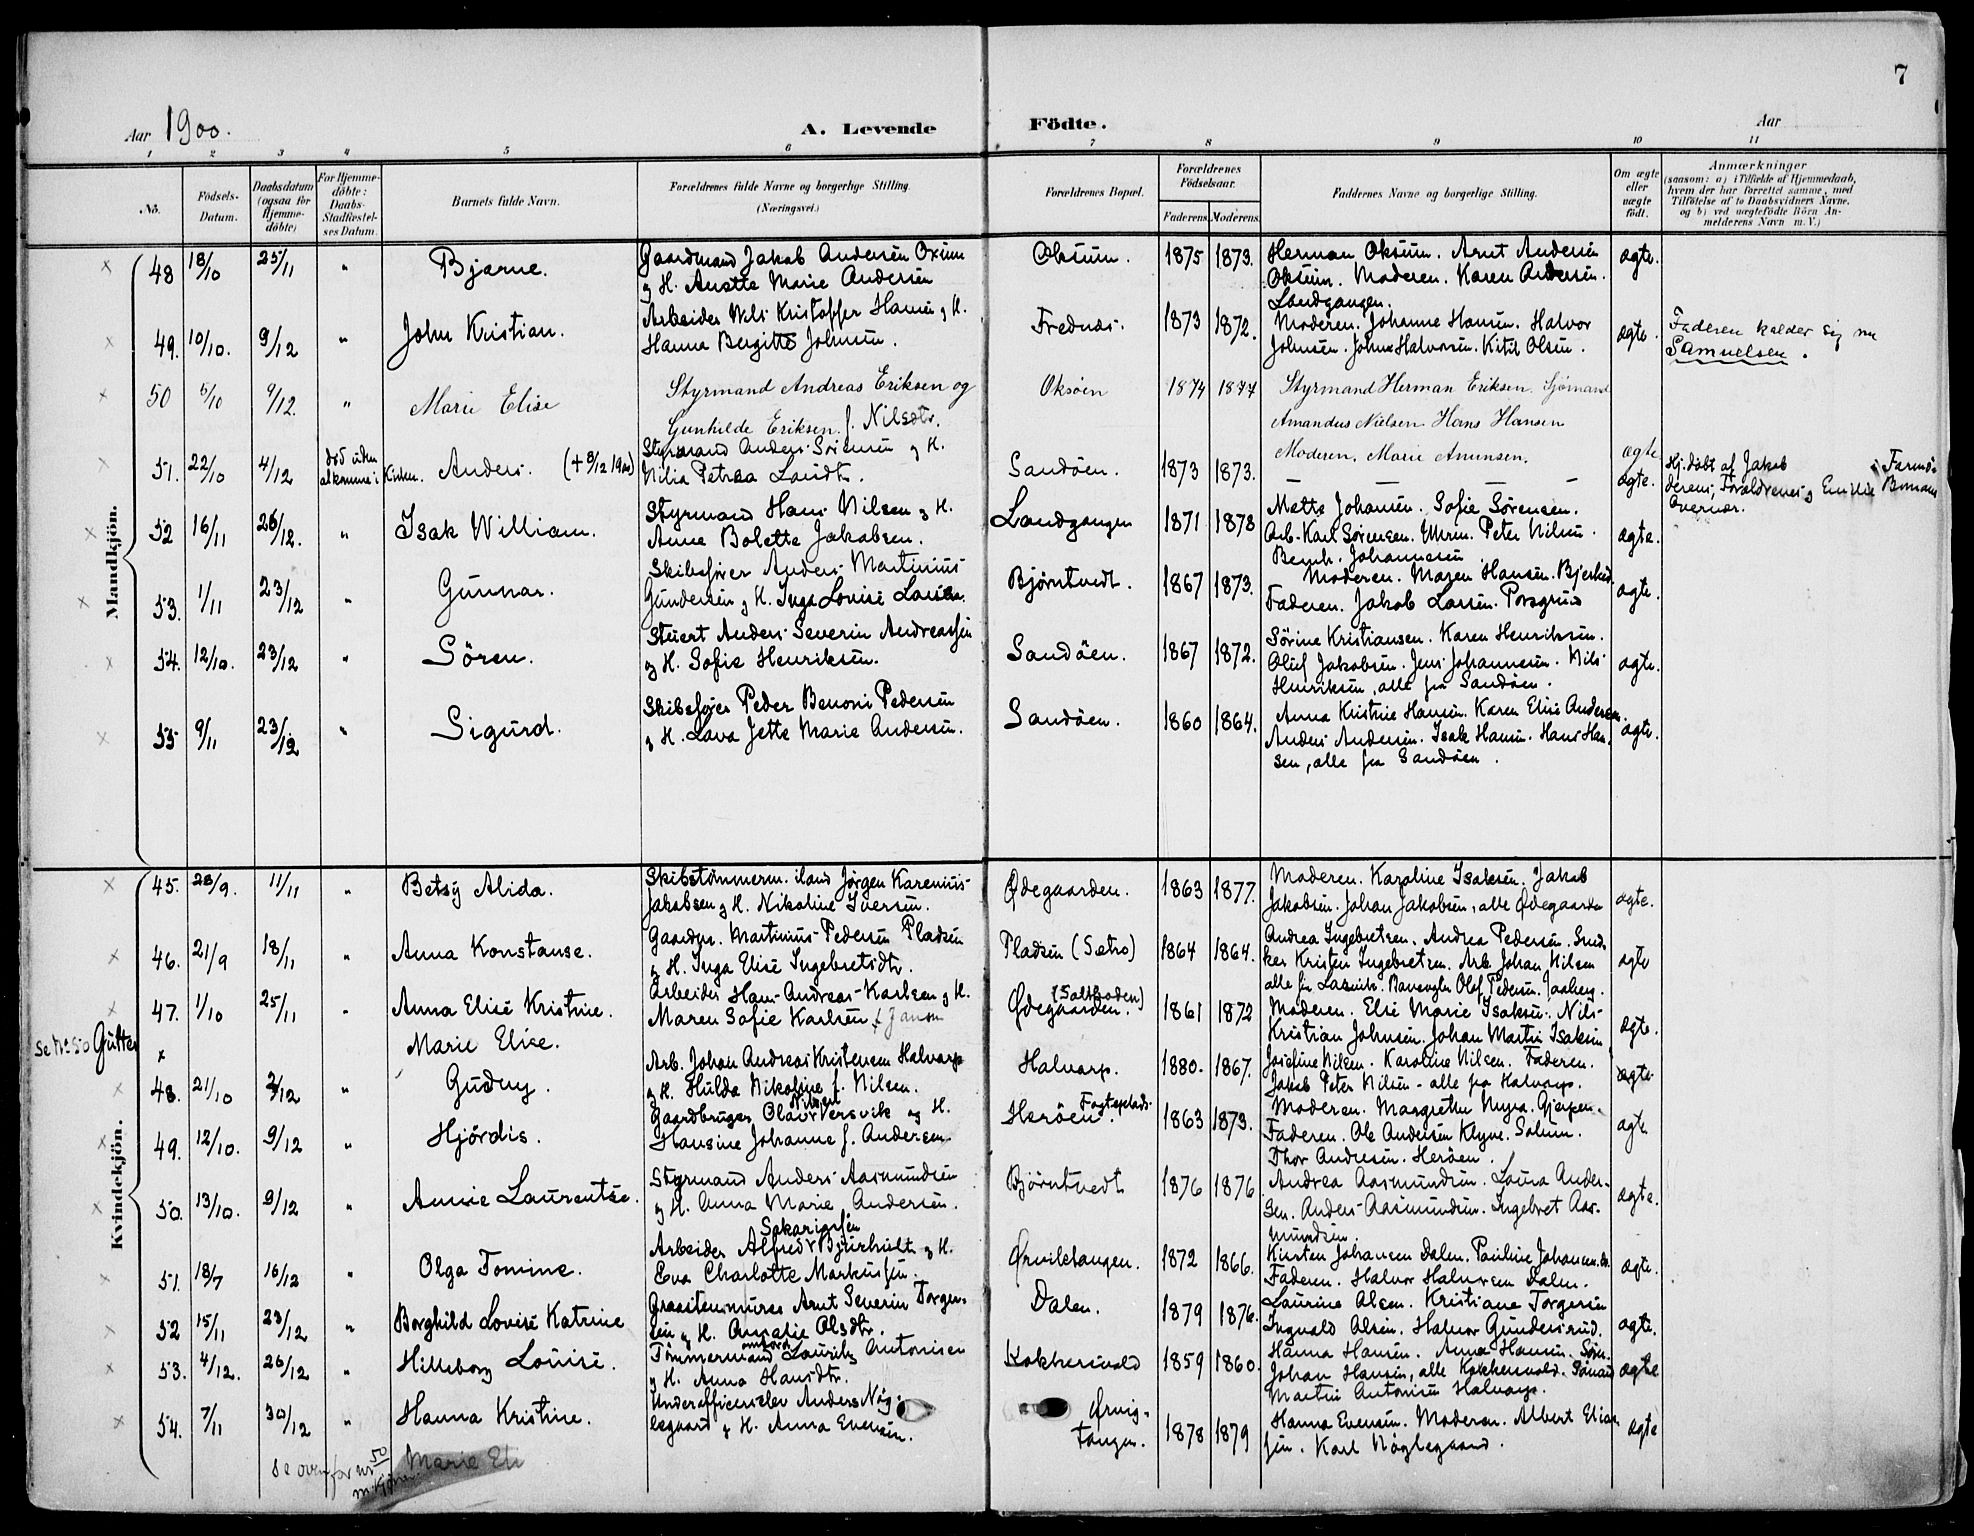 7
Aar 1900.
A. Levende Födte.
Aar
1 2 3 4 5 6 7 8 9 10 11
No.
Födsels-Datum.
Daabsdatum (ogsaa for Hjemme-döbte)
For Hjemme-döbte: Daabs-Stadfæstel-ses Datum.
Barnets fulde Navn.
Forældrenes fulde Navne og borgerlige Stilling.
(Næringsvei.)
Forældrenes Bopæl.
Forældrenes Födselsaar.
Faderens. Moderens.
Faddernes Navne og borgerlige Stilling.
Om ægte eller uægte födt.
Anmærkninger
(saasom: a) i Tilfælde af Hjemmedaab,
hvem der har forrettet samme, med
Tilföielse af to Daabsvidners Navne,
og b) ved uægtefödte Börn An-
melderens Navn m. V.)
Mandkjön.
48 18/10 25/11 " Bjarne. Gaardmand Jakob Andersen Oxum Oksum. 1875 1873. Herman Oksum. Arnt Andersen ægte.
og H. Anette Marie Andersen Oksum. Moderen. Karen Andersen.
Landgangen.
49. 10/10. 9/12 " John Kristian. Arbeider Nils Kristoffer Hansen og H. Frednæs. 1873 1872. Moderen. Johanne Hansen. Halvor ægte. Faderen kalder sig nu
Hanna Bergitte Johnsen. Johnsen. John Halvorsen. Kittil Olsen. Samuelsen.
50 5/10 9/12. " Marie Elise Styrmand Andreas Eriksen og Oksöen 1874 1877 Styrmand Herman Eriksen. Sjømand
Gunhilde Eriksen f. Nilsdtr. Amandus Nielsen Hans Hansen
Moderen, Marie Amunsen. ægte
51. 22/10 4/12 död uden at komme i Kirken. Anders. (+ 8/12 1900) Styrmand Anders Sörensen og H. Sandöen. 1873 1873. — — — — ægte. Hj.döbt af Jakob
Nilia Petræa Landtr. Forældrenes Emilie
52 16/11 26/12. " Isak William. Styrmand Hans Nilsen og H. Landgangen 1871 1878 Mette Johansen. Sofie Sörensen.
Anne Bolette Jakobsen. Arb. Karl Sörensen. Peter Nilsen. ægte.
Bernh. Johannesen
53. 1/11 23/12 " Gunnar. Skibsförer Anders Martinius Bjørntvedt. 1867 1873. Moderen. Maren Hansen.
Gundersen og H. Inga Lovise Larsen. Faderen. Jakob Larsen. Porsgrund ægte.
54. 12/10. 23/12 " Sören. Stuert Anders Severin Andreassen Sandöen. 1867 1872. Sörine Kristiansen. Karen Henriksen.
og H. Sofie Henriksen. Oluf Jakobsen. Jens Johannesen. Nils ægte.
Henriksen, alle fra Sandöen.
55 9/11 23/12 " Sigurd. Skibsförer Peder Benoni Pedersen Sandöen. 1860 1864. Anna Kristine Hansen. Karen Elise Andersen.
og H. Lava Jette Marie Andersen. Anders Andersen. Isak Hansen. Hans Han- ægte.
sen, alle fra Sandöen.
Kvindekjön.
45. 28/9. 11/11 " Betsy Alida. Skibstömmerm. iland Jörgen Karenius Ødegaarden. 1863 1877. Moderen. Karoline Isaksen. Jakob
Jakobsen og H. Nikoline Iversen. Jakobsen. Johan Jakobsen, alle Ødegaarden ægte.
46. 21/9 18/11 " Anna Konstanse. Gaardbr. Martinius Pedersen Pladsen Pladsen (Sætre) 1864 1864. Andrea Ingebretsen. Andrea Pedersen. Sned-
og H. Inga Elise Ingebretsdtr. ker Kristen Ingebretsen. Arb. Johan Nilsen ægte
Olaf Pedersen.
47. 1/10 25/11 " Anna Elise Kristine. Arbeider Hans Andreas Karlsen og H. Ødegaarden. (Saltboden) 1861 1872 Moderen. Else Marie Isaksen. Nils
Maren Sofie Karlsen f. Jansen Kristian Johnsen. Johan Martin Isaksen ægte.
se No 50 Gutter x Marie Elise.
48. 21/10 2/12 " Gudny. Arb. Johan Andreas Kristensen Halvarp Halvarp. 1880. 1867. Josefine Nilsen. Karoline Nilsen. Faderen.
og H. Hulda Nikoline f. Nilsen. Jakob Peter Nilsen - alle fra Halvarp. ægte.
49. 12/10. 9/12 " Hjördis. Gaardbruger Olav Nilsen Versvik og H. Heröen. Fogteplads. 1863 1873. Moderen. Margrethe Myra. Gjerpen.
Hansine Johanne f. Andersen. Faderen. Ole Andersen Klyve. Solum. ægte
Thor Andresen. Heröen.
50. 13/10. 9/12 " Annie Laurentse. Styrmand Anders Aasmundsen Bjørntvedt 1876 1876 Andrea Aasmundsen. Laura Ander-
og H. Anna Marie Andersen. sen. Anders Aasmundsen. Ingebret Aas- ægte.
mundsen.
51. 18/7 16/12 " Olga Tomine. Arbeider Alfred Sakariassen Bjurhult og H. Ørviktangen. 1872 1866. Kirsten Johansen Dalen. Pauline Johansen.
Eva Charlotte Markussen. Faderen. Halvor Halvorsen Dalen. ægte.
52 15/11 23/12 " Borghild Lovise Katrine Graastensmurer Arnt Severin Torger- Dalen. 1879 1876. Laurine Olsen. Kristiane Torgersen
sen og H. Amalie Olsdtr. Ingvald Olsen. Halvor Gundersrud. ægte.
53. 4/12. 26/12 " Hilleborg Louise. Tømmermand ombord Laurits Antonisen Kokkersvold 1859 1860. Hanna Hansen. Anna Hansen. Sörn.
og H. Anna Hansdtr. Johan Hansen, alle Kokkersvold. Sömand ægte
Martin Antonisen Halvarp.
54. 7/11 30/12 " Hanna Kristine. Underofficerselev Anders Nøg- Ørvig- 1878 1879 Hanna Evensen. Moderen. Albert Elias-
legaard og H. Anna Evensen. tangen. sen. Karl Nøglegaard. ægte
se ovenfor nr 50 m.Kjøn Marie Eli